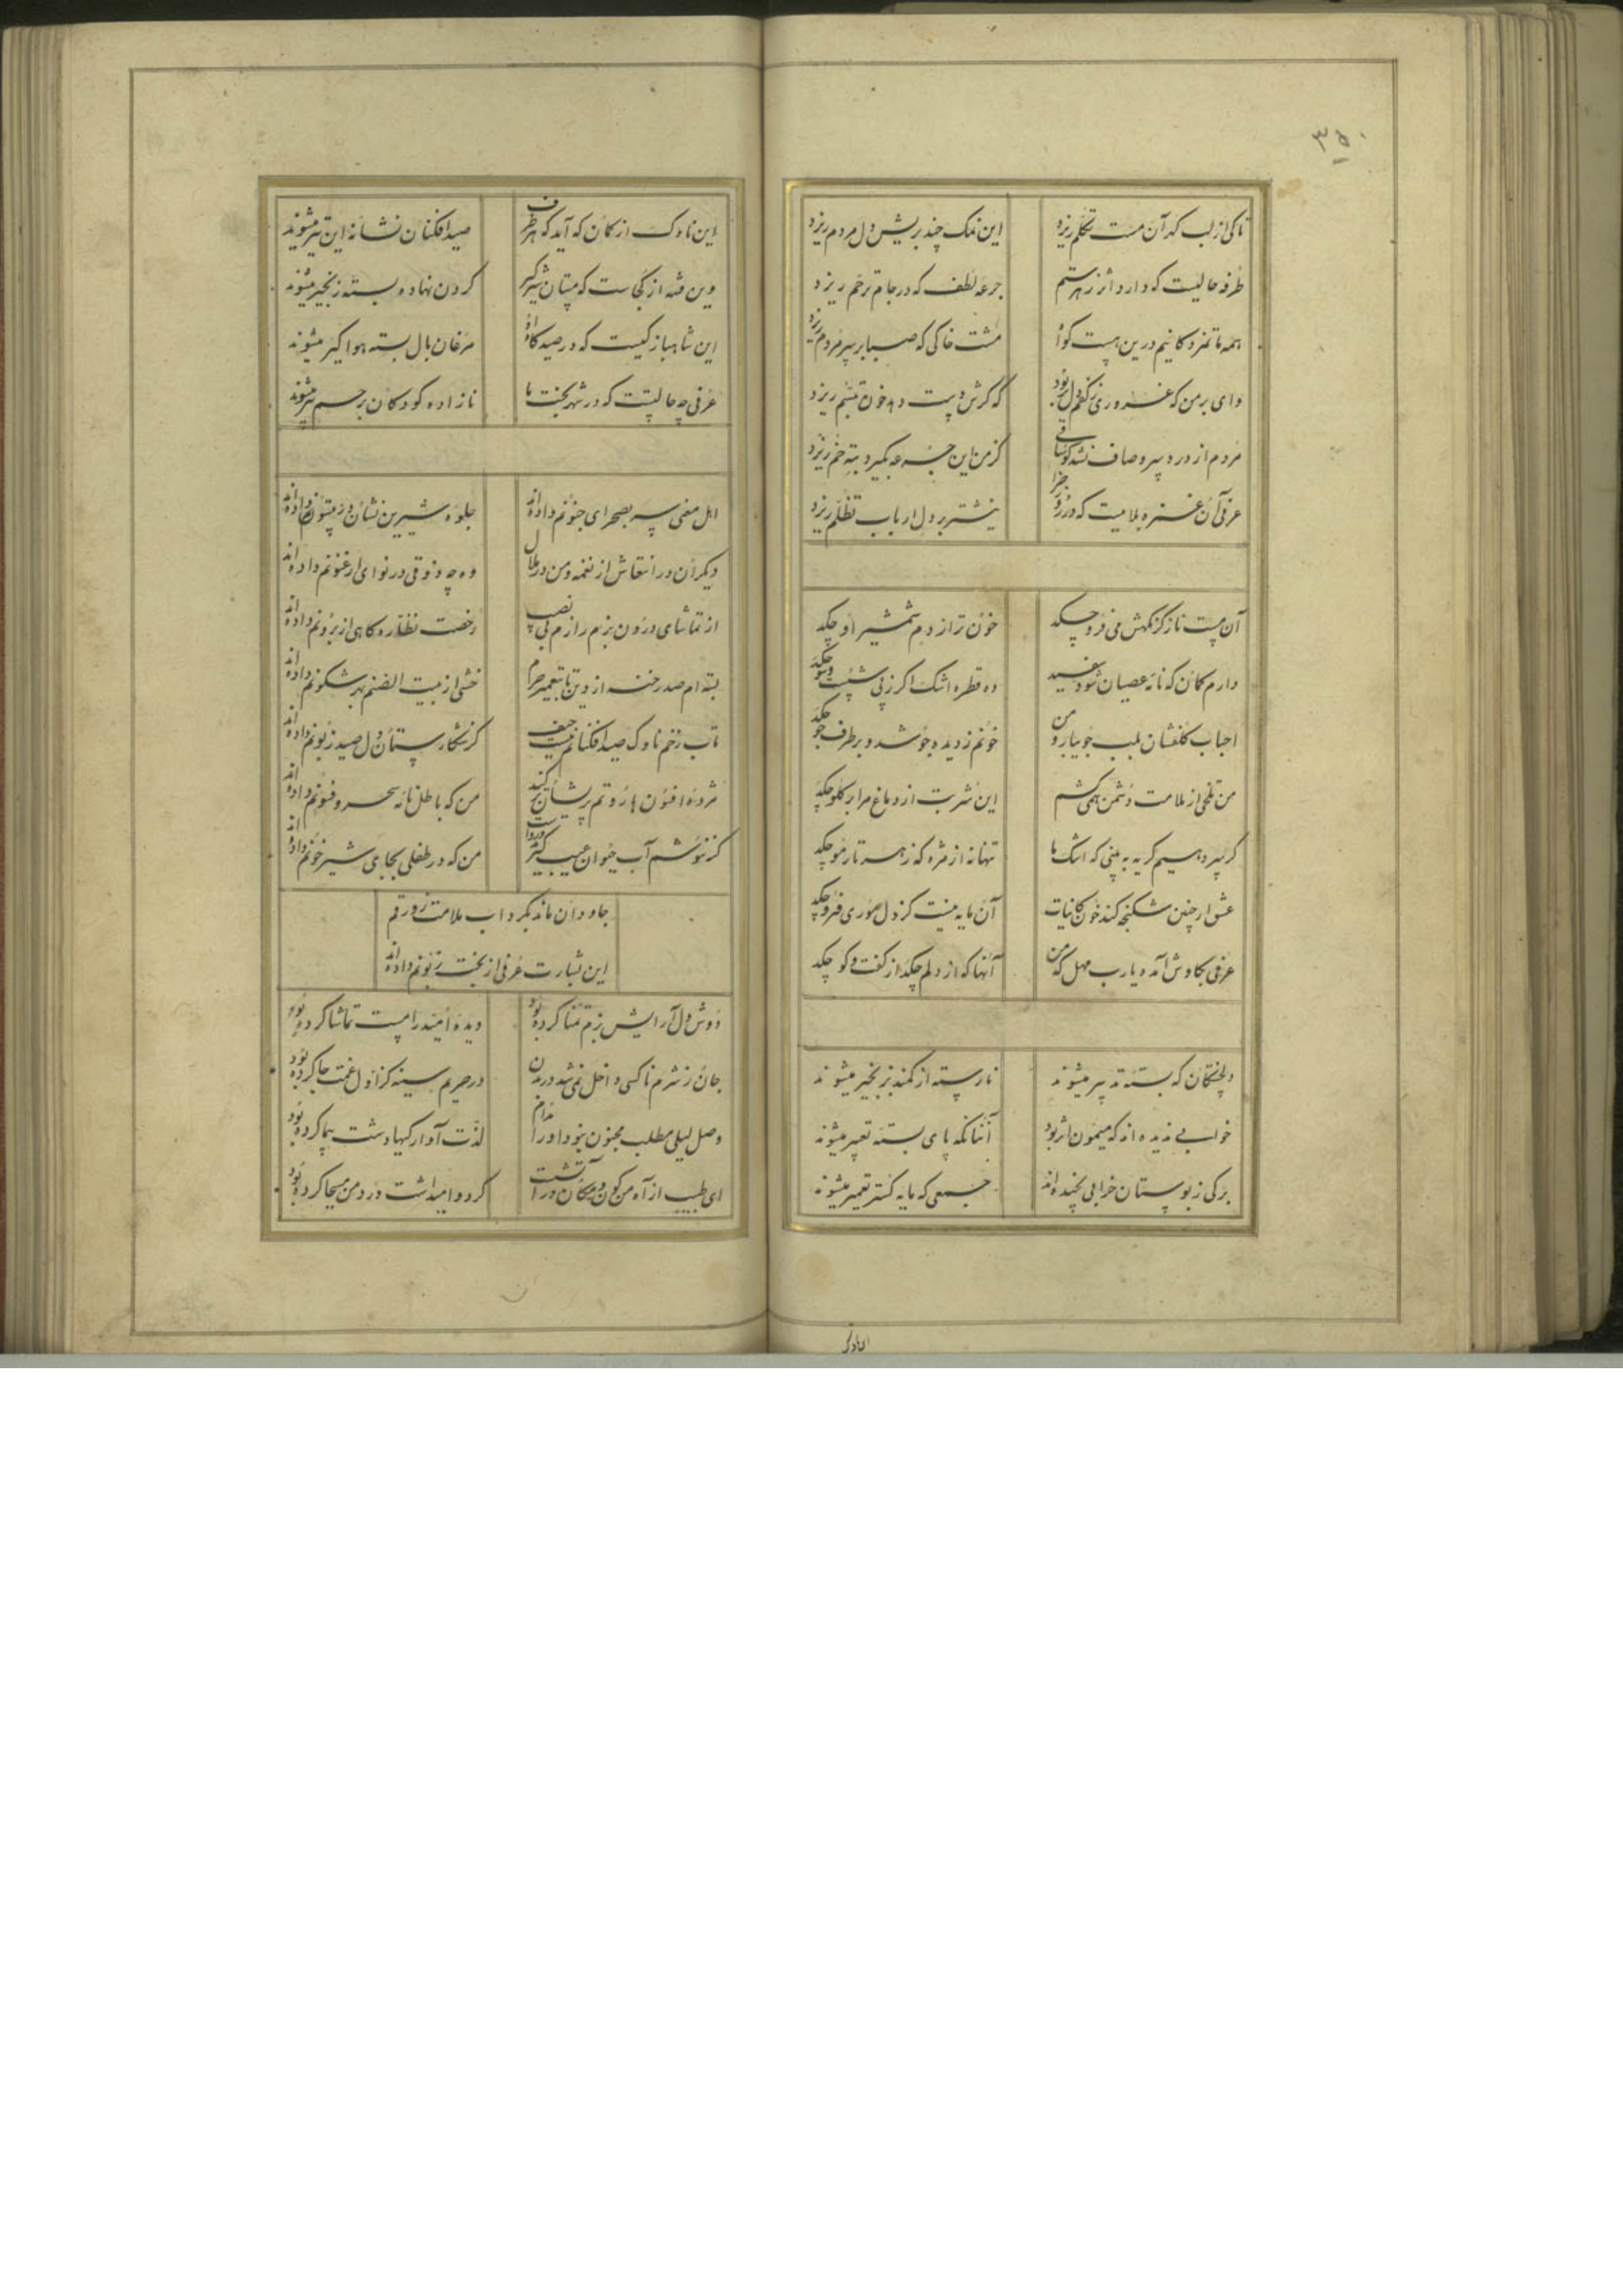 ۳۵۰
تا کی از لب گهر آن مست تکلم ریزد این نمک چند بریش دل مردم ریزد
طرفه حالیست که دارد اثر زهر ستم جرعه لطف که در جام ترحم ریزد
همه ماتمزدگانیم درین کو مشت خاکی که صبا بر سر مردم ریزد
وای بر من که غروری دل بود که گرش دست دهد خون تبسم ریزد
مردم از درد سر و صاف نشد کو ساقی کز من این جرعه بگیرد به ته خم ریزد
عرفی آن غمزه بلاییست که در روز جزا نیشتر بر دل ارباب تظلم ریزد
آن مست ناز کز نگهش می فرو چکد خون تر از دم شمشیر او چکد
دارم گمان که نامه عصیان شود سفید ده قطره اشک اگر ز پی شست و شو چکد
احباب گلفشان بلب جویبار و من خونم ز دیده جوشد و بر طرف جو چکد
من تلخی از ملامت دشمن نمی کشم این شربت از دماغ مرا بر گلو چکد
گر سر دهیم گریه به بینی که اشک ما تنها نه از مژه که ز هر تار مو چکد
عشق ار چنین شکنجه کند خون کاینات آن مایه نیست کز دل موری فرو چکد
عرفی بکاوش آمده یارب مهل که من آنها که از دلم چکد از گفت و گو چکد
دلخستگان که بسته تدبیر میشوند نارسته از کمند بزنجیر میشوند
خوابی ندیده اند که میمون اثر بود آنانکه پای بسته تعبیر میشوند
برگی ز بوستان خرابی نچیده اند جمعی که مایه گستر تعمیر میشوند
این ناوک
این ناوک از کمان که آید که هر طرف صید افکنان نشانه این تیر میشوند
وین فتنه از کجاست که مستان شیرگیر گردن نهاده بسته زنجیر میشوند
این شاهباز کیست که در صیدگاه او مرغان بال بسته هوا گیر میشوند
عرفی چه حالتست که در شهر بخت ما نازاده کودکان برحم پیر میشوند
اهل معنی سر بصحرای جنونم داده اند جلوه شیرین نشان در بیستونم داده اند
دیگران در انتعاش از نغمه و من در ملال وه چه ذوقی در نوای ارغنونم داده اند
از تماشای درون بزم رازم بی نصیب رخصت نظاره گاهی از برونم داده اند
بسته ام صد رخنه از دین تا بتعمیر حرم خشتی از بیت الصنم بهر شگونم داده اند
تاب زخم ناوک صید افکنانم نیست حیف کز شکارستان دل صید زبونم داده اند
مژده افسون هاروتم پریشان تر کند من که باطل نامه سحر و فسونم داده اند
گر ننوشم آب حیوان عیب من که در طفلی بجای شیر خونم داده اند
جاودان ماند بگرداب ملامت زورقم
این بشارت عرفی از بخت زبونم داده اند
دوش دل آرایش بزم تمنا کرده بود دیده امید را مست تماشا کرده بود
جان ز شرم ناکسی داخل نمی شد در بدن در حریم سینه کز اول غمت جا کرده بود
وصل لیلی مطلب مجنون نبود او را مدام لذت آوارگیها دشت پیما کرده بود
ای طبیب از آه من کون و مکان در آتشست گرد و امیداشت درد من مسیحا کرده بود